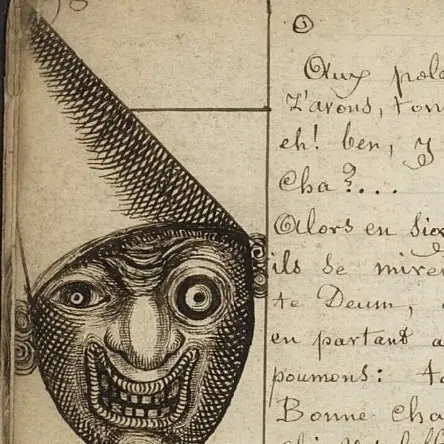 Aux pole
L'avons, ton
eh! ben, y
Cha?...
Alors en six
ils se mire
te Deum,
en partant a
poumons: ta
Bonne cha